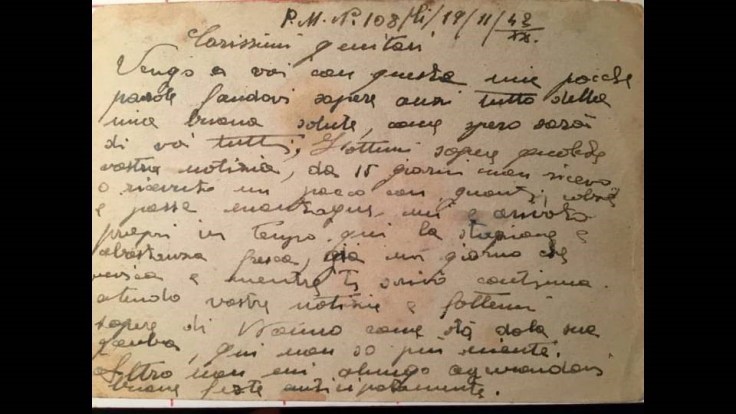 P.M. N. 108/li/19/11/42
XX.
Carissimi genitori
Vengo a voi con queste mie poche
parole fandovi sapere anzi tutto della
mia buona salute, come spero sarà
di voi tutti, sapere
vostre notizia, da 15 giorni non ricevo
o ricevuto un paco con guanti,
e passa montagne, mi è arivato
propri in tempo qui la stagione e
abastanza fresca, già un giorno che
e mentre ti scrivo continua.
atendo vostre notizie e fattemi
sapere di Nonno come stà dola sua
gamba, qui non so più niente.
Altro non mi alungo agurandovi
buone feste anticipatamente.